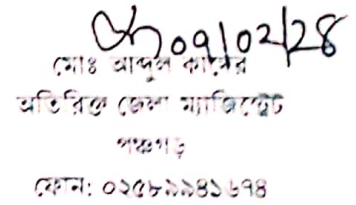 ০৭/০২/২৪
মোঃ আব্দুল কাদের
অতিরিক্ত জেলা ম্যাজিস্ট্রেট
পঞ্চগড়
ফোন: ০২৫৮৯৯৪১৬৭৪